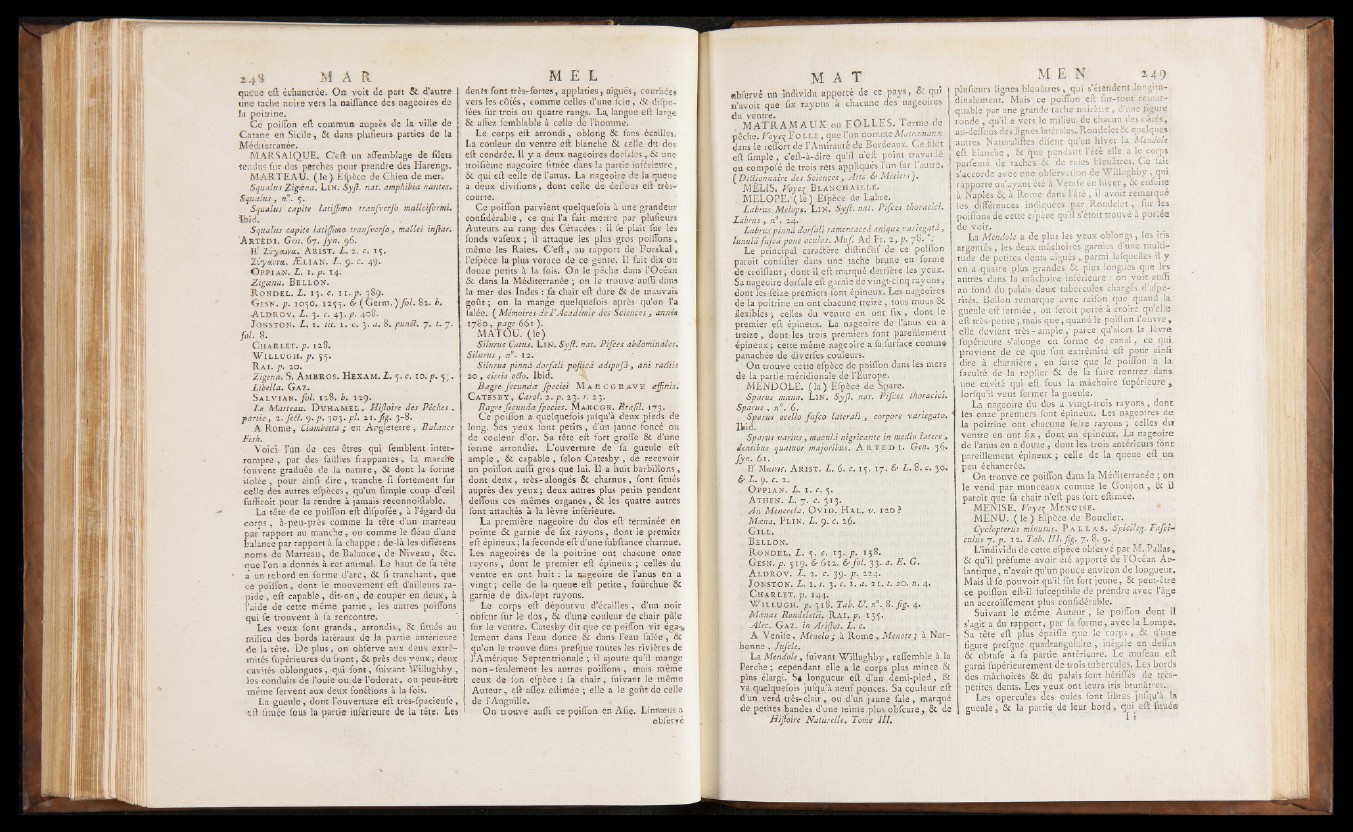 248 M A R
queue est échancrée. On voit de part & d'autre
une tache noire vers la naissance des nageoires de
la poitrine.
Ce poisson est commun auprès de la ville de
Catane en Sicile, & dans plusieurs parties de la
Méditerranée.
MARSAIQUE. C'est un assemblage de filets
tendus sur des perches pour prendre des Harengs.
MARTEAU. (le) Espèce de Chien de mer.
Squalus Zigæna. LIN. Syst. nat. amphibia nantes.
Squalus, n°. 5.
Squalus capite latissimo transverso malleiformi.
Ibid.
Squalus capite latissimo transverso, mallei instar.
ARTEDI. Gen. 67. syn. 96.
Ἡ Ζύγαινα. ARIST. L. 2. c. 15.
Ζύγαινα. ÆLIAN. L. 9. c. 49.
OPPIAN. L. 1. p. 14.
Zigæna. BELLON.
RONDEL. L. 13. c. 11. p. 389.
GESN. p. 1050. 1255. & (Germ.) fol. 82. b.
ALDROV. L. 3. c. 43. p. 408.
JONSTON. L. 1. tit. 1. c. 3. a. 8. punct. 7. t. 7.
fol. 8.
CHARLET. p. 128.
WILLUGH. p. 55.
RAI. p. 20.
Zigena. S. AMBROS. HEXAM. L. 5. c. 10. p. 55.
Libella. GAZ.
SALVIAN. fol. 128. b. 129.
Le Marteau. DUHAMEL, Histoire des Pêches,
partie, 2. sect. 9. p. 303, pl. 21. fig. 3-8.
A Rome, Ciambetta; en Angleterre, Balance
Fish.
Voici l'un de ces êtres qui semblent interrompre,
par des saillies frappantes, la marche
souvent graduée de la nature, & dont la forme
isolée, pour ainsi dire, tranche si fortement sur
celle des autres espèces, qu'un simple coup d'œil
suffiroit pour la rendre à jamais reconnoissable.
La tête de ce poisson est disposée, à l'égard du
corps, à-peu-près comme la tête d'un marteau
par rapport au manche, ou comme le fléau d'une
balance par rapport à sa chappe: de-là les différens
noms de Marteau, de Balance, de Niveau, &c.
que l'on a donnés à cet animal. Le haut de sa tête
a un rebord en forme d'arc, & si tranchant, que
ce poisson, dont le mouvement est d'ailleurs rapide,
est capable, dit-on, de couper en deux, à
l'aide de cette même partie, les autres poissons
qui se trouvent à sa rencontre.
Les yeux sont grands, arrondis, & situés au
milieu des bords latéraux de la partie antérieure
de la tête. De plus, on observe aux deux extrémités
supérieures du front, & près des yeux, deux
cavités oblongues, qui sont, suivant Willughby,
les conduits de l'ouie ou de l'odorat, ou peut-être
même servent aux deux fonctions à la fois.
La gueule, dont l'ouverture est très-spacieuse,
est située sous la partie inférieure de la tête. Les
M E L
dents sont très-fortes, applaties, aiguës, courbées
vers les côtés, comme celles d'une scie, & disposées
sur trois ou quatre rangs. La langue est large
& assez semblable à celle de l'homme.
Le corps est arrondi, oblong & sans écailles.
La couleur du ventre est blanche & celle du dos
est cendrée. Il y a deux nageoires dorsales, & une
troisième nageoire située dans la partie inférieure,
& qui est celle de l'anus. La nageoire de la queue
a deux divisions, dont celle de dessous est très-
courte.
Ce poisson parvient quelquefois à une grandeur
considérable, ce qui l'a fait mettre par plusieurs
Auteurs au rang des Cétacées: il se plait sur les
fonds vaseux; il attaque les plus gros poissons,
même les Raies. C'est, au rapport de Forskal,
l'espèce la plus vorace de ce genre. Il fait dix ou
douze petits à la fois. On le pêche dans l'Océan
& dans la Méditerranée; on le trouve aussi dans
la mer des Indes: sa chair est dure & de mauvais
goût; on la mange quelquefois après qu'on l'a
salée. (Mémoires de l'Académie des Sciences, année
1780, page 661).
MATOU. (le)
Silurus Catus. LIN. Syst. nat. Pisces abdominales.
Silurus, n°. 12.
Silurus pinnâ dorsali posticâ adiposâ, ani radiis
20, cirris octo. Ibid.
Bagre secundæ speciei MARCGRAVE affinis.
CATESBY, Carol. 2. p. 23. t. 23.
Bagre secunda species. MARCGR. Brasil. 173.
Ce poisson a quelquefois jusqu'à deux pieds de
long. Ses yeux sont petits, d'un jaune foncé ou
de couleur d'or. Sa tête est fort grosse & d'une
forme arrondie. L'ouverture de sa gueule est
ample, & capable, selon Catesby, de recevoir
un poisson aussi gros que lui. Il a huit barbillons,
dont deux, très-alongés & charnus, sont situés
auprès des yeux; deux autres plus petits pendent
dessous ces mêmes organes, & les quatre autres
sont attachés à la lèvre inférieure.
La première nageoire du dos est terminée en
pointe & garnie de six rayons, dont le premier
est épineux; la seconde est d'une substance charnue.
Les nageoires de la poitrine ont chacune onze
rayons, dont le premier est épineux; celles du
ventre en ont huit: la nageoire de l'anus en a
vingt; celle de la queue est petite, fourchue &
garnie de dix-sept rayons.
Le corps est dépourvu d'écailles, d'un noir
obscur sur le dos, & d'une couleur de chair pâle
sur le ventre. Catesby dit que ce poisson vit également
dans l'eau douce & dans l'eau salée, &
qu'on le trouve dans presque toutes les rivières de
l'Amérique Septentrionale; il ajoute qu'il mange
non-seulement les autres poissons, mais même
ceux de son espèce: sa chair, suivant le même
Auteur, est assez estimée; elle a le goût de celle
de l'Anguille.
On trouve aussi ce poisson en Asie. Linnæus a
observé
M A T
observé un individu apporté de ce pays, & qui
n'avoit que six rayons à chacune des nageoires
du ventre.
MATRAMAUX ou FOLLES. Terme de
pêche. Voyez FOLLE, que l'on nomme Matramaux
dans le ressort de l'Amirauté de Bordeaux. Ce filet
est simple, c'est-à-dire qu'il n'est point travaillé
ou composé de trois rets appliqués l'un sur l'autre.
(Dictionnaire des Sciences, Arts & Métiers).
MÉLIS. Voyez BLANCHAILLE.
MÉLOPE. (le) Espèce de Labre.
Labrus Melops. LIN. Syst. nat. Pisces thoracici.
Labrus, n°. 24.
Labrus pinnâ dorsali ramentaceâ anique variegatâ,
lunulâ fuscâ pone oculos. Mus. Ad Fr. 2, p. 78. *.
Le principal caractère distinctif de ce poisson
paroît consister dans une tache brune en forme
de croissant, dont il est marqué derrière les yeux.
Sa nageoire dorsale est garnie de vingt-cinq rayons,
dont les seize premiers sont épineux. Les nageoires
de la poitrine en ont chacune treize, tous mous &
flexibles; celles du ventre en ont six, dont le
premier est épineux. La nageoire de l'anus en a
treize, dont les trois premiers sont pareillement
épineux; cette même nageoire a sa surface comme
panachée de diverses couleurs.
On trouve cette espèce de poisson dans les mers
de la partie méridionale de l'Europe.
MENDOLE. (la) Espèce de Spare.
Sparus mæna. LIN. Syst. nat. Pisces thoracici.
Sparus, n°. 6.
Sparus ocello fusco laterali, corpore variegato.
Ibid.
Sparus varius, maculâ nigricante in medio latere,
dentibus quatuor majoribus. ARTEDI. Gen. 36.
syn. 61.
Ἡ Μαινις. ARIST. L. 6. c. 15. 17. & L. 8. c. 30.
& L. 9. c. 2.
OPPIAN. L. 1. c. 5.
ATHEN. L. 7. c. 313.
An Menerela. OVID. HAL. v. 120?
Mæna. PLIN. L. 9. c. 26.
GILL.
BELLON.
RONDEL. L. 5. c. 13. p. 138.
GESN. p. 519. & 612. & fol. 33. a. E. G.
ALDROV. L. 2. c. 39. p. 224.
JONSTON. L. 1. t. 3. c. 1. a. 21. t. 20. n. 4.
CHARLET. p. 144.
WILLUGH. p. 318. Tab. U. n°. 8. fig. 4.
Mænas Rondeletii. RAI. p. 135.
Alec. GAZ. in Aristot. L. c.
A Venise, Menelo; à Rome, Menote; à Narbonne,
Juscle.
La Mendole, suivant Willughby, ressemble à la
Perche; cependant elle a le corps plus mince &
plus élargi. Sa longueur est d'un demi-pied, &
va quelquefois jusqu'à neuf pouces. Sa couleur est
d'un verd très-clair, ou d'un jaune sale, marqué
de petites bandes d'une teinte plus obscure, & de
Histoire Naturelle. Tome III.
M E N 249
plusieurs lignes bleuâtres, qui s'étendent longitudinalement.
Mais ce poisson est sur-tout remarquable
par une grande tache noirâtre, d'une figure
ronde, qu'il a vers le milieu de chacun des côtés,
au-dessous des lignes latérales. Rondelet & quelques
autres Naturalistes disent qu'en hiver la Mendole
est blanche, & que pendant l'été elle a le corps
parsemé de taches & de raies bleuâtres. Ce fait
s'accorde avec une observation de Willughby, qui
rapporte qu'ayant été à Venise en hiver, & ensuite
à Naples & à Rome dans l'été, il avoit remarqué
les différences indiquées par Rondelet, sur les
poissons de cette espèce qu'il s'étoit trouvé à portée
de voir.
La Mendole a de plus les yeux oblongs, les iris
argentés, les deux mâchoires garnies d'une multitude
de petites dents aiguës, parmi lesquelles il y
en a quatre plus grandes & plus longues que les
autres dans la mâchoire inférieure: on voit aussi
au fond du palais deux tubercules chargés d'aspérités.
Bellon remarque avec raison que quand la
gueule est fermée, on seroit porté à croire qu'elle
est très-petite; mais que, quand le poisson l'ouvre,
elle devient très-ample, parce qu'alors la lèvre
supérieure s'alonge en forme de canal, ce qui
provient de ce que son extrémité est pour ainsi
dire à charnière, en sorte que le poisson a la
faculté de la replier & de la faire rentrer dans
une cavité qui est sous la mâchoire supérieure,
lorsqu'il veut fermer la gueule.
La nageoire du dos a vingt-trois rayons, dont
les onze premiers sont épineux. Les nageoires de
la poitrine ont chacune seize rayons; celles du
ventre en ont six, dont un épineux. La nageoire
de l'anus en a douze, dont les trois antérieurs sont
pareillement épineux; celle de la queue est un
peu échancrée.
On trouve ce poisson dans la Méditerranée; on
le vend par monceaux comme le Goujon, & il
paroît que sa chair n'est pas fort estimée.
MENISE. Voyez MENUISE.
MENU. (le) Espèce de Bouclier.
Cyclopterus minutus. PALLAS. Spicileg. Fasciculus
7. p. 12. Tab. III. fig. 7. 8. 9.
L'individu de cette espèce observé par M. Pallas,
& qu'il présume avoir été apporté de l'Océan Atlantique,
n'avoit qu'un pouce environ de longueur.
Mais il se pouvoit qu'il fût fort jeune, & peut-être
ce poisson est-il susceptible de prendre avec l'âge
un accroissement plus considérable.
Suivant le même Auteur, le poisson dont il
s'agit a du rapport, par sa forme, avec la Lompe.
Sa tête est plus épaisse que le corps, & d'une
figure presque quadrangulaire, inégale en dessus
& obtuse à sa partie antérieure. Le museau est
garni supérieurement de trois tubercules. Les bords
des mâchoires & du palais sont hérissés de très-
petites dents. Les yeux ont leurs iris brunâtres.
Les opercules des ouies sont libres jusqu'à la
gueule, & la partie de leur bord, qui est située
I i